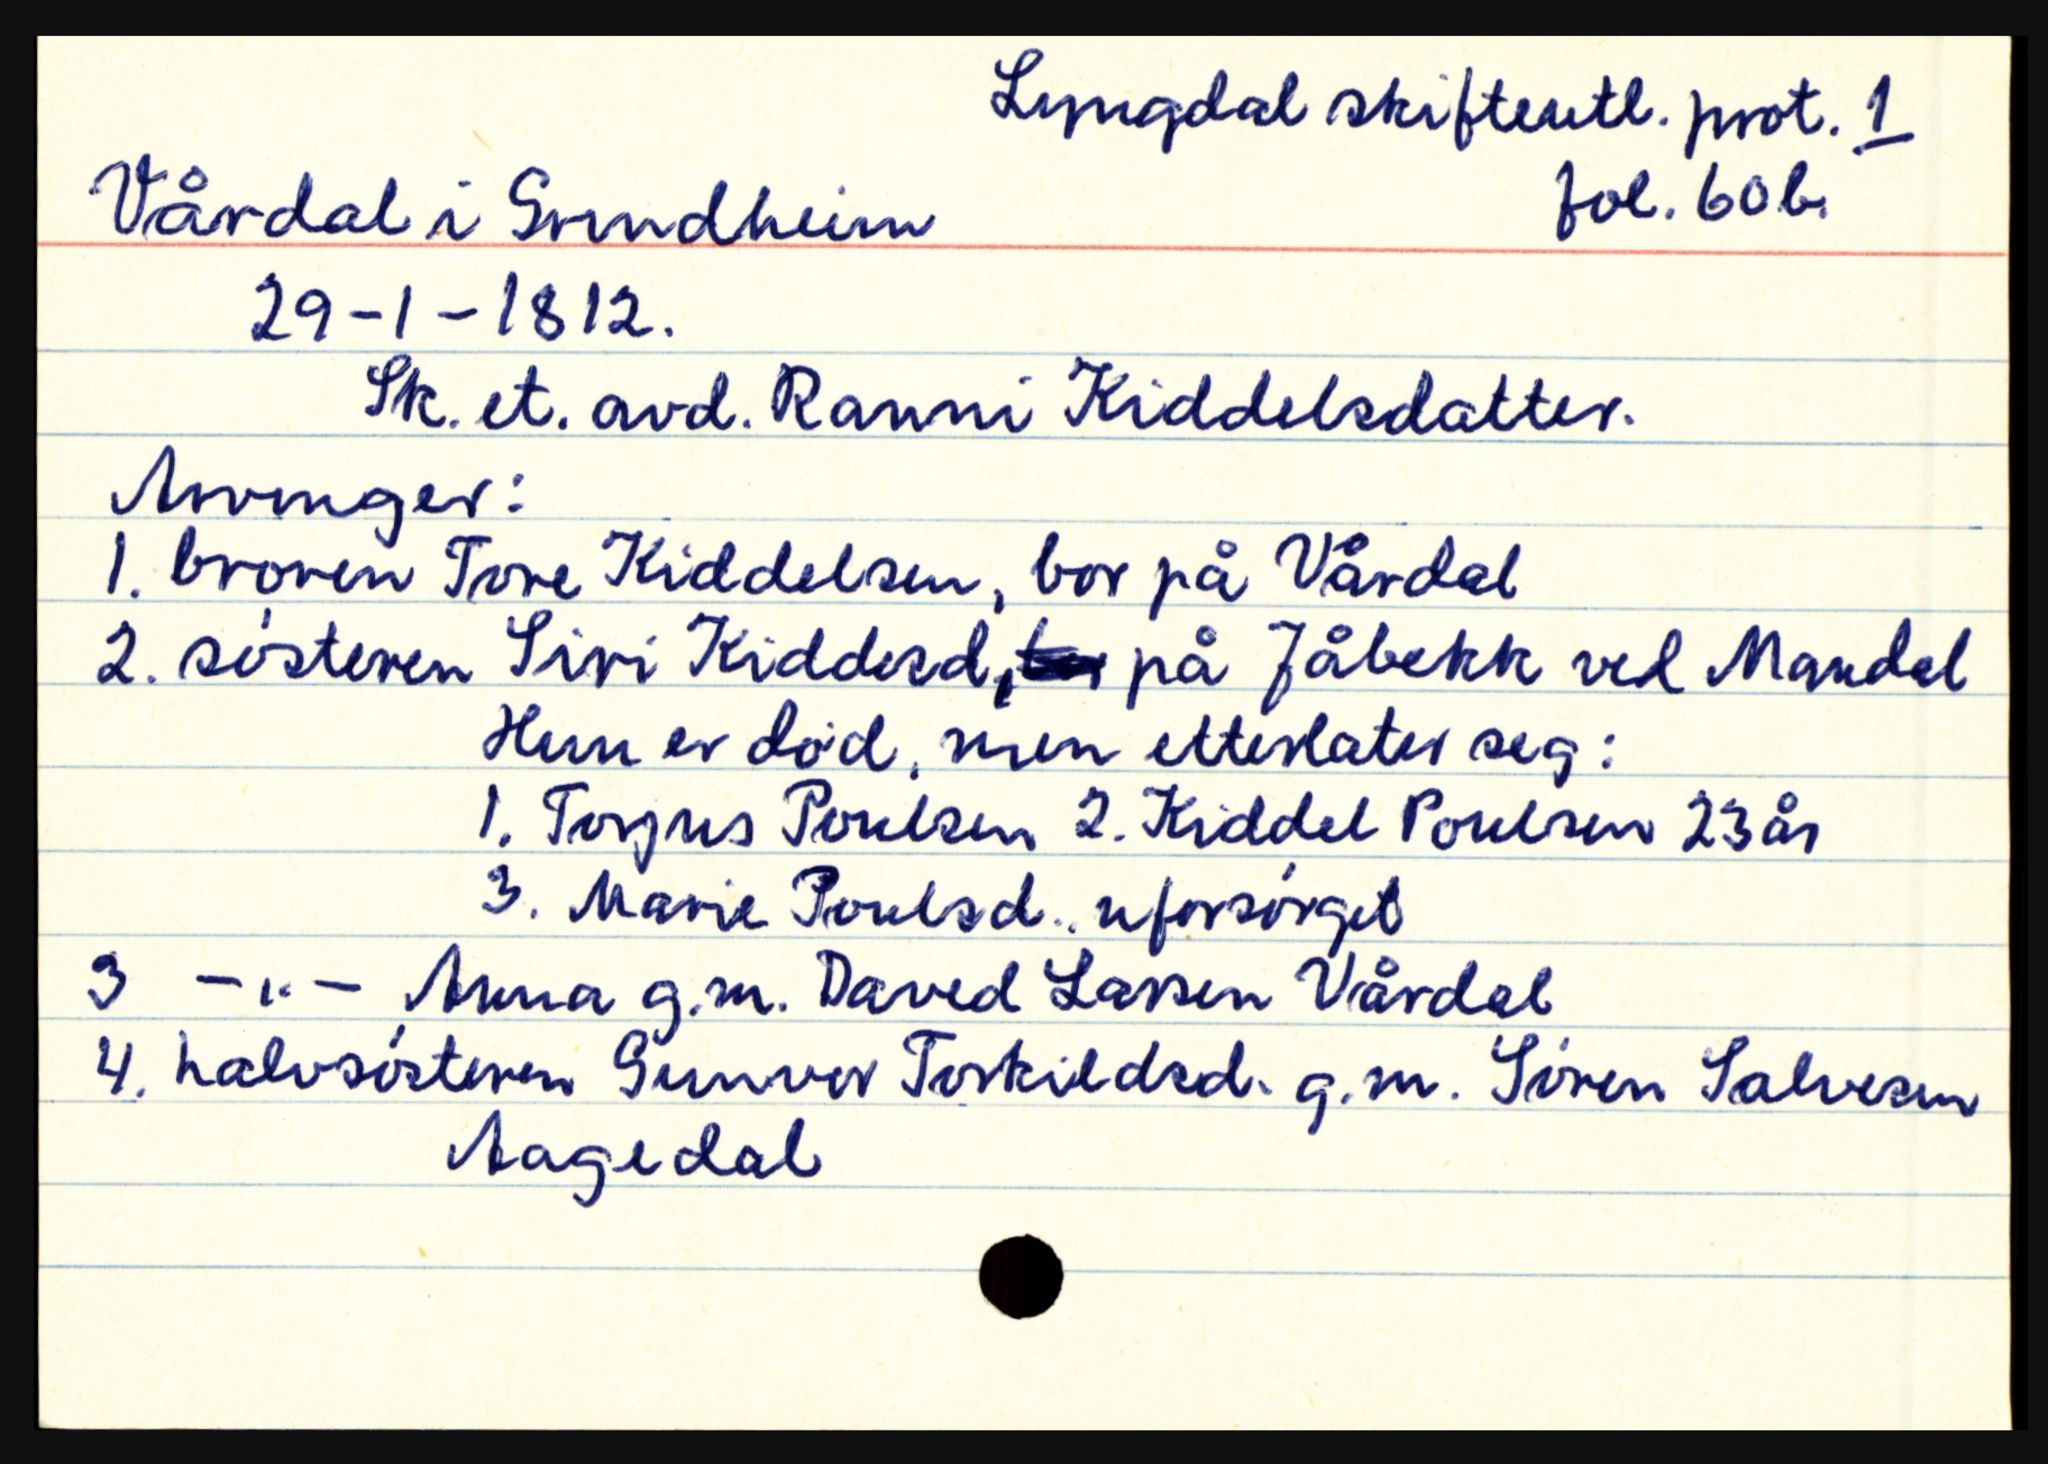 Lyngdal skifteutl. prot. 1
Vårdal i Grindheim fol. 60b.
29-1-1812.
Sk. et. avd. Ranni Kiddelsdatter.
Arvinger:
1. broren Tore Kiddelsen, bor på Vårdal
2. søsteren Siri Kiddelsd, på Jåbekk ved Mandal
Hun er død, men etterlater seg:
1. Torjus Poulsen 2. Kiddel Poulsen 23 år
3. Marie Poulsd. uforsørget
3 -"- Anna g.m. Daved Lassen Vårdal
4. halvsøsteren Gunvor Torkildsd. g.m. Sören Salvesen
Aagedal